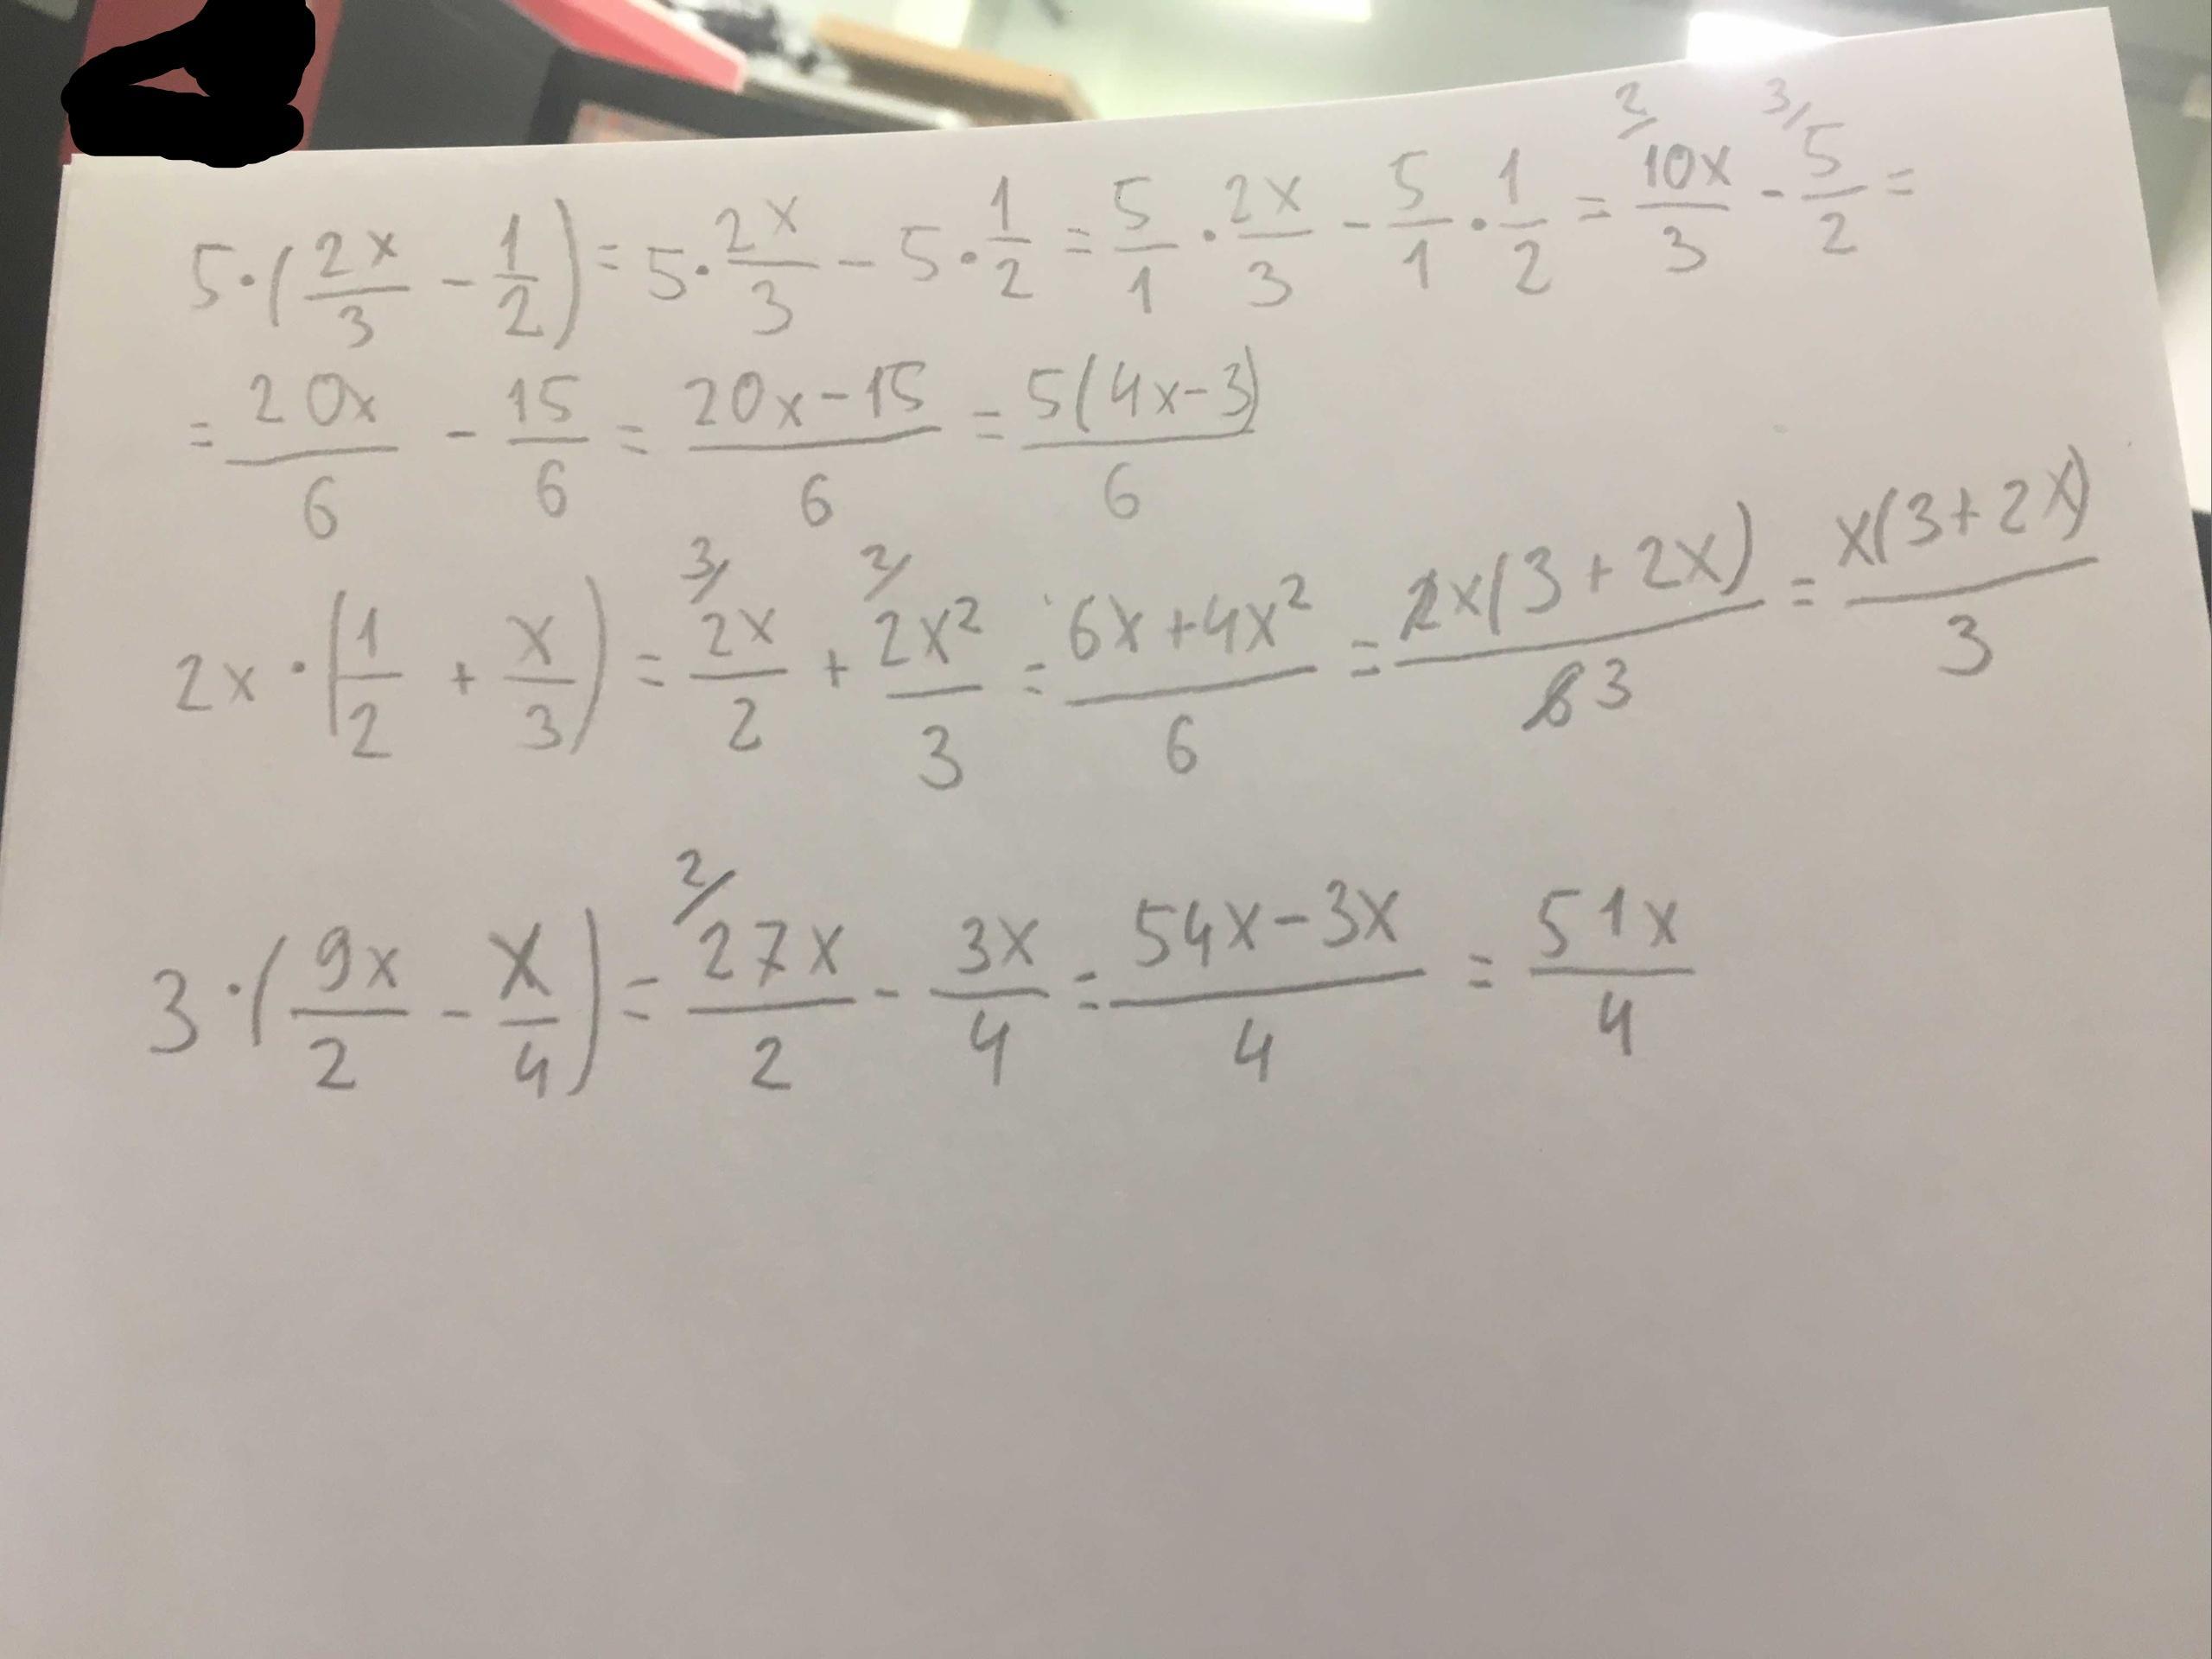 5·(2x/3 - 1/2) = 5·2x/3 - 5·1/2 = 5/1·2x/3 - 5/1·1/2 = 2/ 10x/3 - 3/ 5/2 =
= 20x/6 - 15/6 = 20x-15/6 = 5(4x-3)/6
2x·(1/2 + x/3) = 3/ 2x/2 + 2/ 2x²/3 = 6x+4x²/6 = 2x(3+2x)/6 3 = x(3+2x)/3
3·(9x/2 - x/4) = 2/ 27x/2 - 3x/4 = 54x-3x/4 = 51x/4